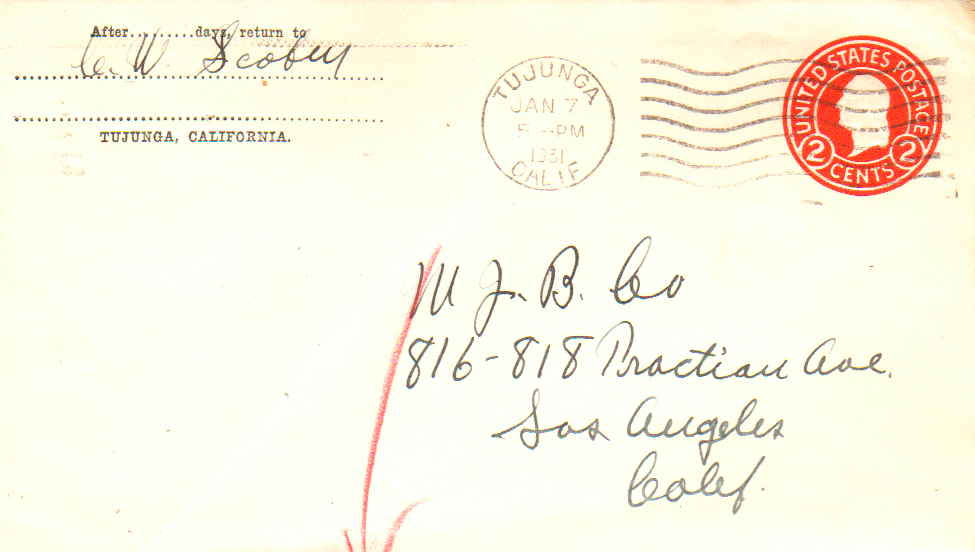 After.........days, return to
C. W. Scobey
TUJUNGA, CALIFORNIA.
TUJUNGA
JAN 7
5 - PM
1931
CALIF
UNITED STATES POSTAGE
2 2
CENTS
M. J. B. Co
816-818 Bractian Ave.
Los Angeles
Calif.